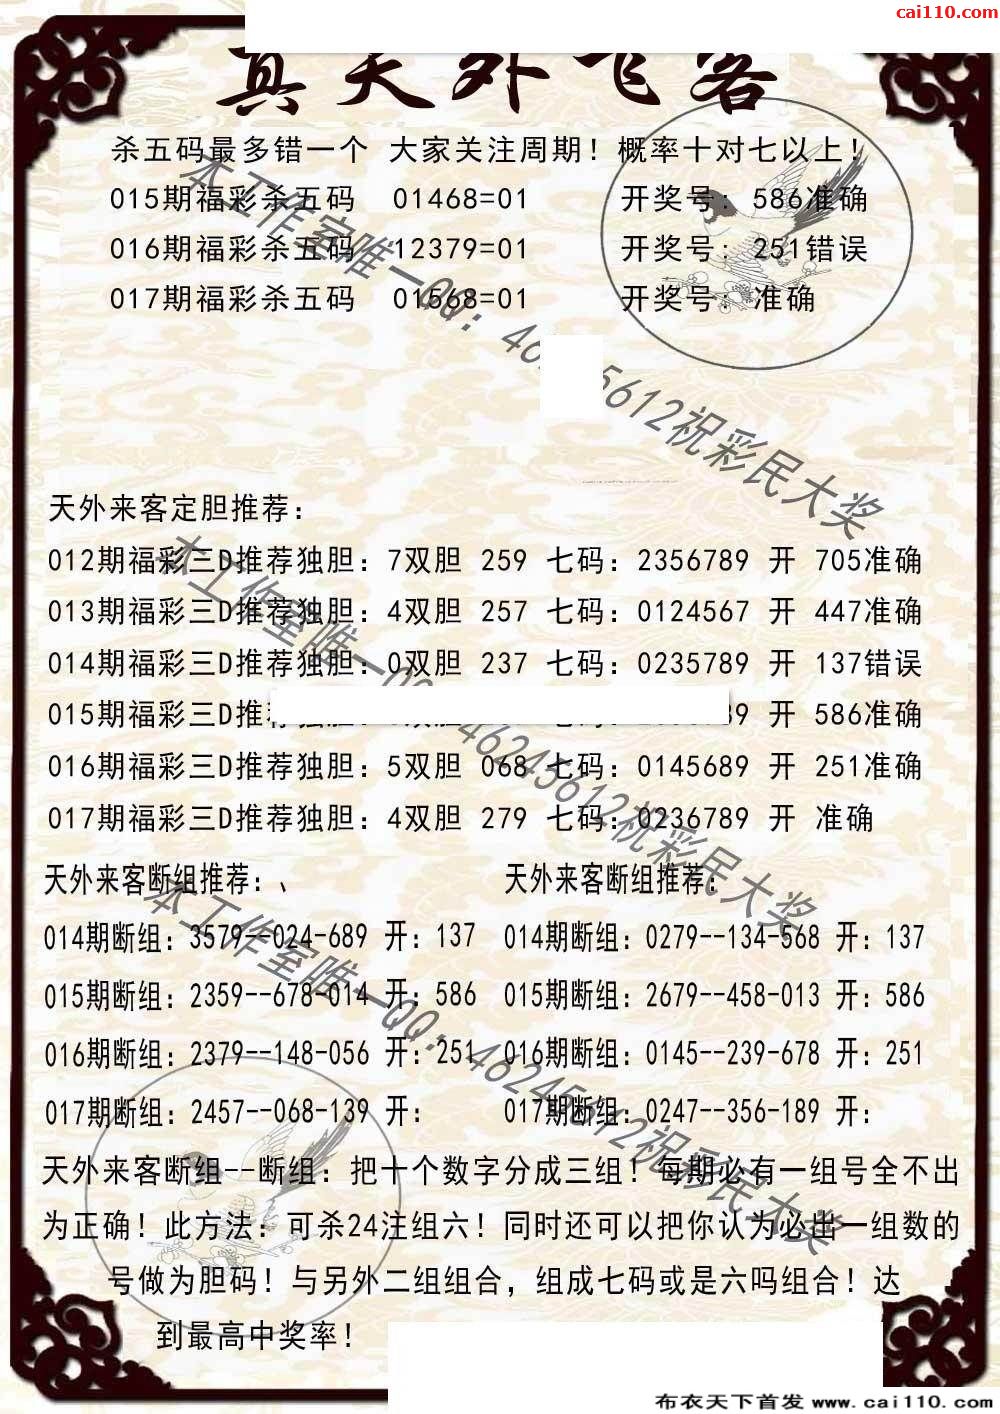 cai110.com
真天外飞客
杀五码最多错一个 大家关注周期！概率十对七以上！
015期福彩杀五码 01468=01 开奖号：586准确
016期福彩杀五码 12379=01 开奖号：251错误
017期福彩杀五码 01568=01 开奖号：准确
本工作室唯一QQ：46 5612祝彩民大奖
天外来客定胆推荐：
012期福彩三D推荐独胆：7双胆 259 七码：2356789 开 705准确
013期福彩三D推荐独胆：4双胆 257 七码：0124567 开 447准确
014期福彩三D推荐独胆：0双胆 237 七码：0235789 开 137错误
本工作室唯一QQ 46245612祝彩民大奖
015期福彩三D推 89 开 586准确
016期福彩三D推荐独胆：5双胆 068 七码：0145689 开 251准确
017期福彩三D推荐独胆：4双胆 279 七码：0236789 开 准确
天外来客断组推荐：、 天外来客断组推荐：
014期断组：3579--024-689 开：137 014期断组：0279--134-568 开：137
015期断组：2359--678-014 开：586 015期断组：2679--458-013 开：586
016期断组：2379--148-056 开：251 016期断组：0145--239-678 开：251
017期断组：2457--068-139 开： 017期断组：0247--356-189 开：
本工作室唯一QQ：46245612祝彩民大奖
天外来客断组--断组：把十个数字分成三组！每期必有一组号全不出
为正确！此方法：可杀24注组六！同时还可以把你认为必出一组数的
号做为胆码！与另外二组组合，组成七码或是六吗组合！达
到最高中奖率！
布衣天下首发 www.cai110.com